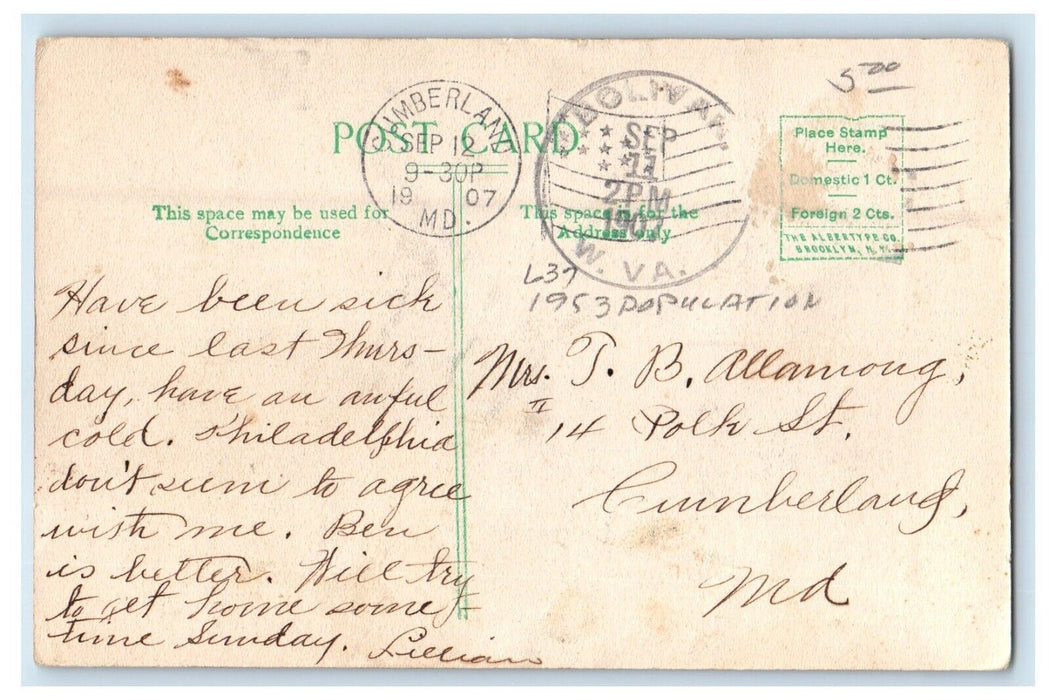 5.00
POST CARD
CUMBERLAND
SEP 12
9-30P
1907
MD.
BOLIVAR
SEP
11
2PM
1907
W. VA.
Place Stamp
Here.
Domestic 1 Ct.
Foreign 2 Cts.
THE ALBERTYPE CO.
BROOKLYN, N.Y.
This space may be used for
Correspondence
This space is for the
Address only
L37
1953 POPULATION
Have been sick
since last Thurs-
day, have an awful
cold. Philadelphia
don't seem to agree
with me. Ben
is better. Will try
to get home some-
time Sunday. Lillian
Mrs. T. B. Allamong,
14 Polk St.
Cumberland,
Md